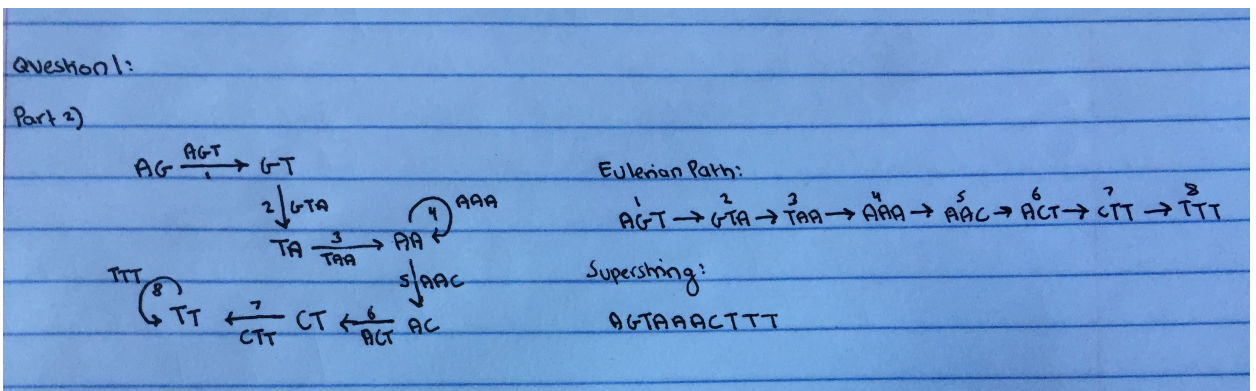 Question 1:
Part 2)
AG AGT 1 GT
2 GTA
TA 3 TAA AA 4 AAA
5 AAC
TTT 8 TT 7 CTT CT 6 ACT AC
Eulerian Path:
1 2 3 4 5 6 7 8
AGT → GTA → TAA → AAA → AAC → ACT → CTT → TTT
Superstring:
AGTAAACTTT